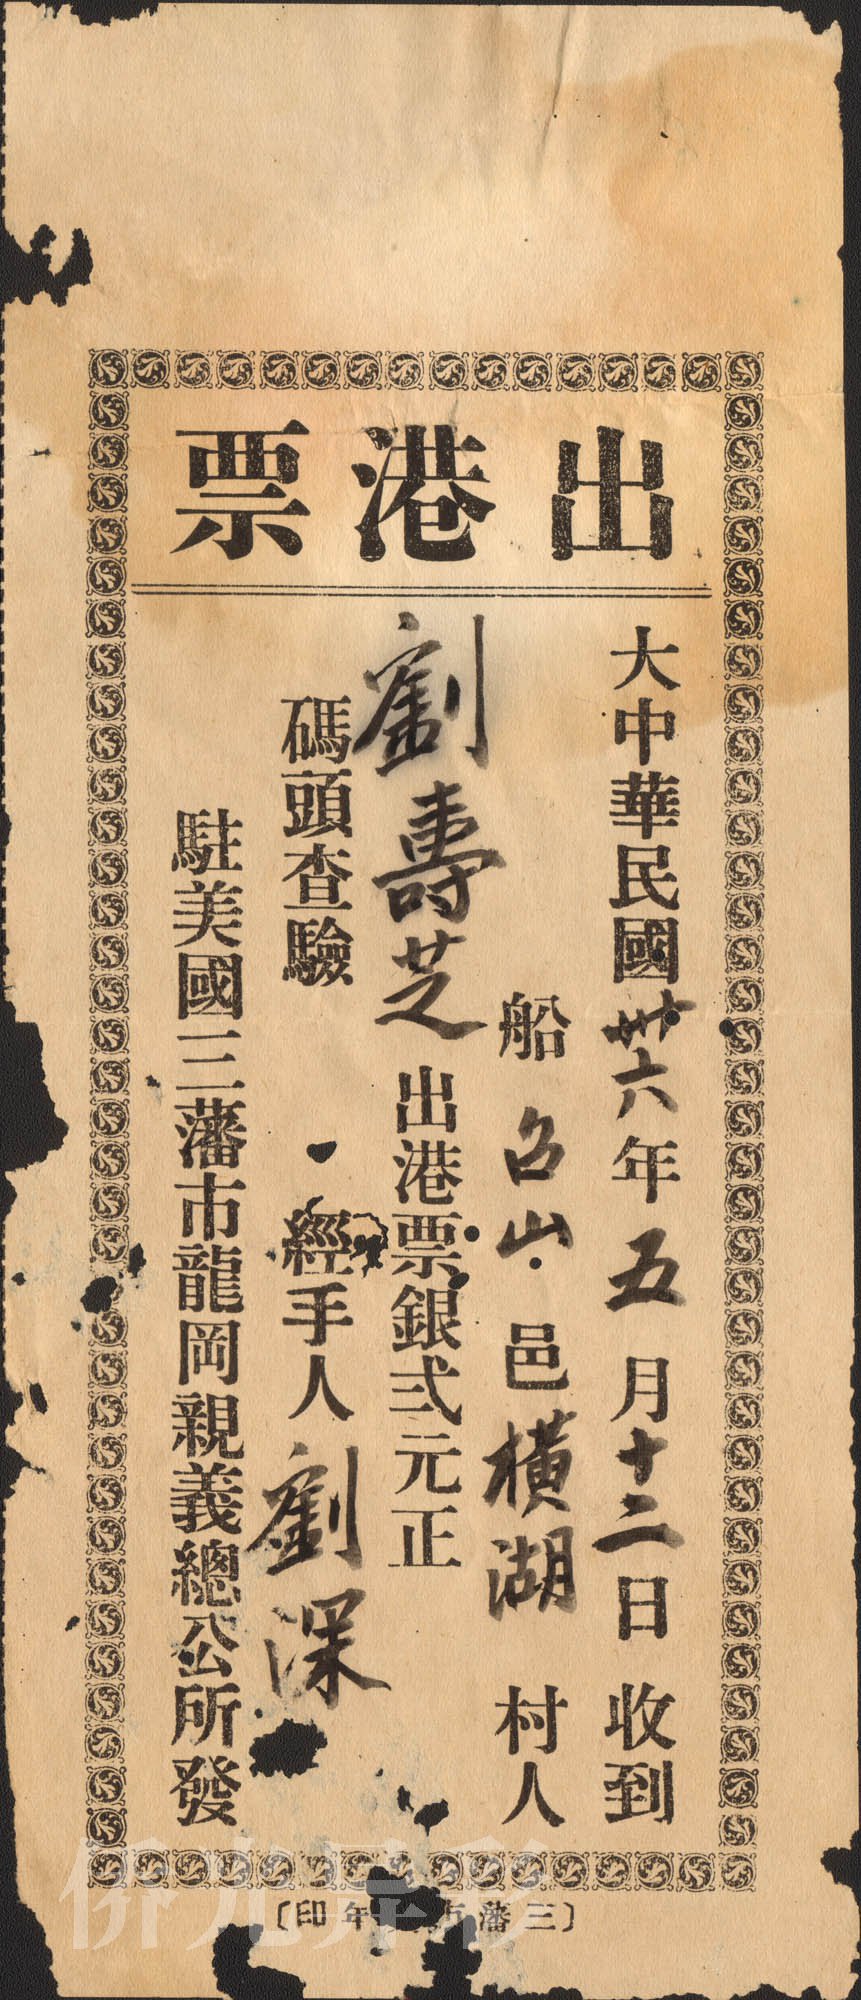 出港票
大中華民國卅六年五月十二日收到
船 台山 邑橫湖 村人
劉壽芝出港票銀弍元正
碼頭查驗 經手人劉深
駐美國三藩市龍岡親義總公所發
〔三藩市 年印〕
侨光异彩